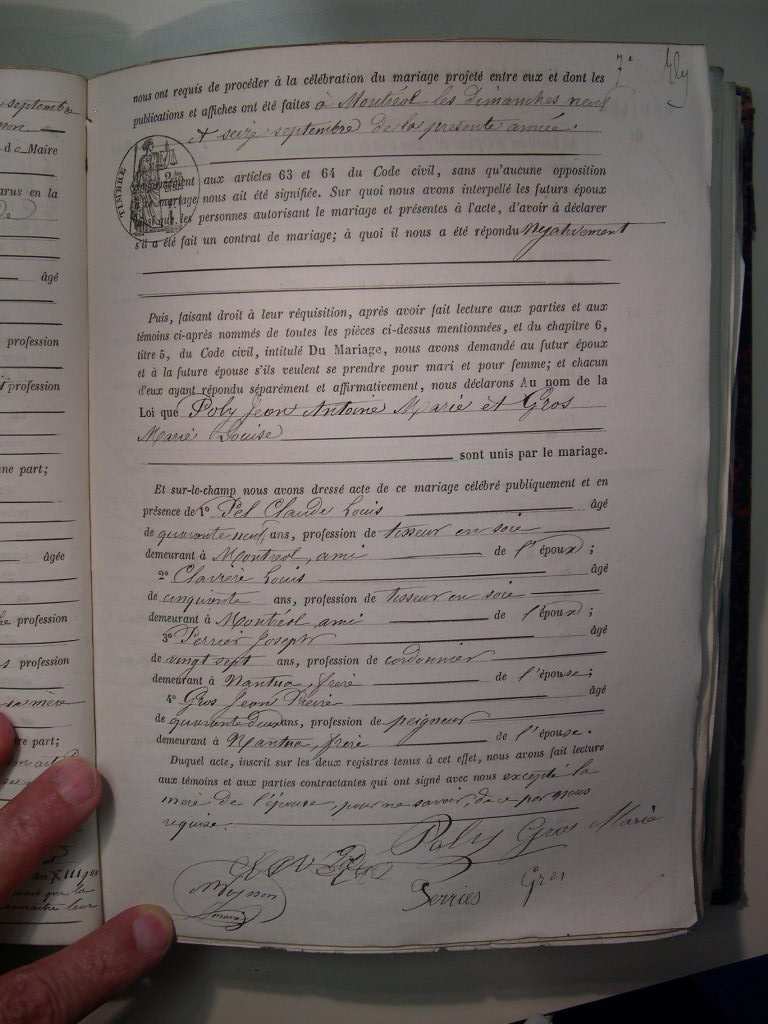 septembre
de Maire
arus en la
âgé
profession
profession
ne part;
âgée
profession
profession
sa mère
re part;
7e
nous ont requis de procéder à la célébration du mariage projeté entre eux et dont les
publications et affiches ont été faites à Montréal les dimanches neuf
& seize septembre de la présente année.
TIMBRE
aux articles 63 et 64 du Code civil, sans qu'aucune opposition
mariage nous ait été signifiée. Sur quoi nous avons interpellé les futurs époux
les personnes autorisant le mariage et présentes à l'acte, d'avoir à déclarer
s'il a été fait un contrat de mariage; à quoi il nous a été répondu Négativement
Puis, faisant droit à leur réquisition, après avoir fait lecture aux parties et aux
témoins ci-après nommés de toutes les pièces ci-dessus mentionnées, et du chapitre 6,
titre 5, du Code civil, intitulé Du Mariage, nous avons demandé au futur époux
et à la future épouse s'ils veulent se prendre pour mari et pour femme; et chacun
d'eux ayant répondu séparément et affirmativement, nous déclarons Au nom de la
Loi que Poly Jean Antoine Marie et Gros
Marie Louise
sont unis par le mariage.
Et sur-le-champ nous avons dressé acte de ce mariage célébré publiquement et en
présence de 1o Pel Claude Louis âgé
de quarante neuf ans, profession de tisseur en soie
demeurant à Montréal, ami de l'époux;
2o Louis âgé
de cinquante ans, profession de tisseur en soie
demeurant à Montréal ami de l'époux;
3o Perrier Joseph âgé
de vingt sept ans, profession de cordonnier
demeurant à Nantua, frère de l'épouse;
4o Gros Jean Pierre âgé
de quarante deux ans, profession de peigneur
demeurant à Nantua, frère de l'épouse.
Duquel acte, inscrit sur les deux registres tenus à cet effet, nous avons fait lecture
aux témoins et aux parties contractantes qui ont signé avec nous excepté la
mère de l'épouse, pour ne savoir, de ce par nous
requise.
Poly Gros Maria
Perrier Gros